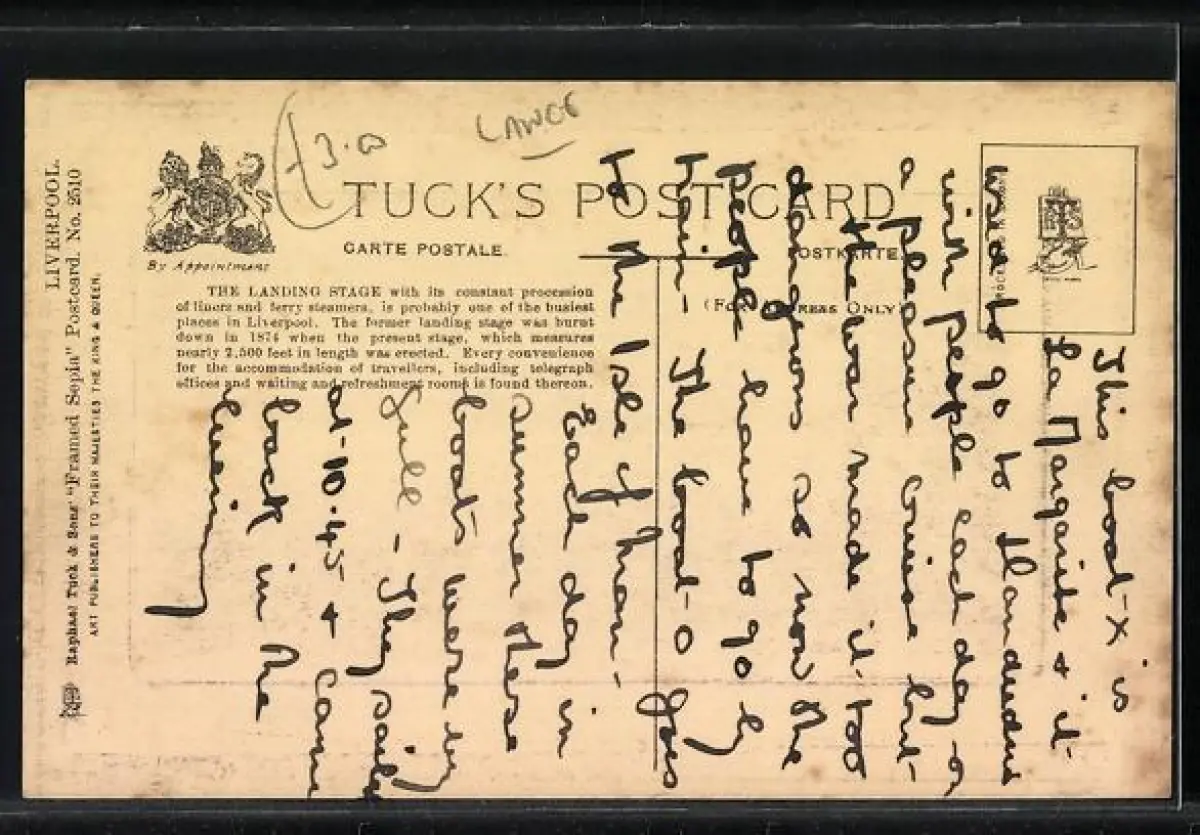 LIVERPOOL.
Raphael Tuck & Sons' "Framed Sepia" Postcard. No. 2510
ART PUBLISHERS TO THEIR MAJESTIES THE KING & QUEEN.
£3.00
By Appointment
TUCK'S POST CARD
CARTE POSTALE.
POSTKARTE.
(FOR ADDRESS ONLY)
THE LANDING STAGE with its constant procession
of liners and ferry steamers, is probably one of the busiest
places in Liverpool. The former landing stage was burnt
down in 1874 when the present stage, which measures
nearly 2,500 feet in length was erected. Every convenience
for the accommodation of travellers, including telegraph
offices and waiting and refreshment rooms is found thereon.
This boat - X is
La Margarite & it-
used to go to Llandudno
with people each day on
a pleasure cruise but-
the war made it too
dangerous so now the
people have to go by
train - The boat - O goes
to the Isle of Man -
Each day in
summer these
boats were in
full - They sailed
at - 10.45 & came
back in the